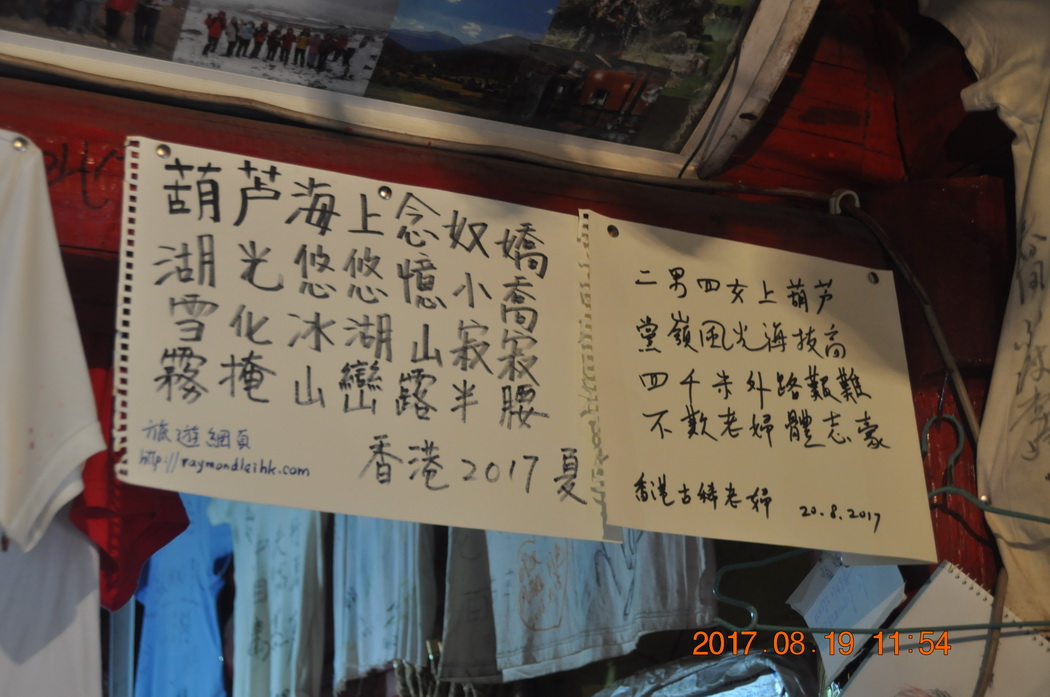 葫芦海上念奴嬌
湖光悠悠憶小喬
雪化冰湖山寂寂
霧掩山巒露半腰
旅遊網頁
http://raymondlaihk.com
香港2017夏
二男四女上葫芦
黨嶺風光海拔高
四千米外路艱難
不歎老婦體志豪
香港古稀老婦 20.8.2017
2017.08.19 11:54